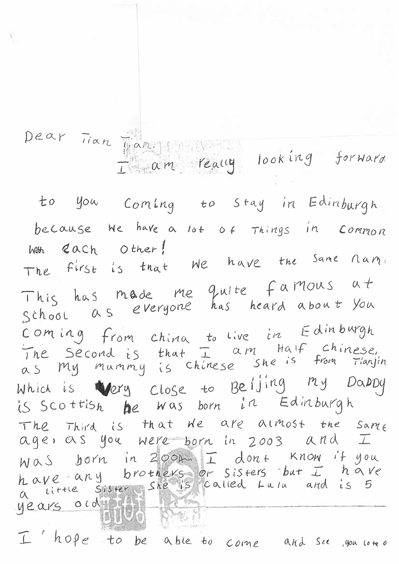 Dear Tian Tian,
I am really looking forward
to you coming to stay in Edinburgh
because we have a lot of things in common
with each other!
The first is that we have the same nam
This has made me quite famous at
school as everyone has heard about you
coming from china to live in Edinburgh
The second is that I am half chinese,
as my mummy is chinese she is from Tianjin
which is very close to Beijing my Daddy
is Scottish he was born in Edinburgh
The Third is that we are almost the same
age, as you were born in 2003 and I
was born in I dont know if you
have any brothers or sisters but I have
a little sister she is called Lulu and is 5
years old
I hope to be able to come and see you